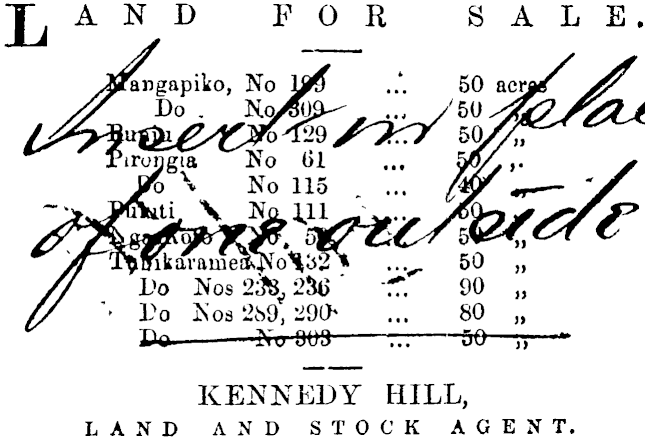 LAND FOR SALE.
Mangapiko, No 199 ... 50 acres
Do No 309 ... 50 „
No 129 ... 50 „
Pirongia No 61 ... 50 „
Do No 115 ... 40 „
No 111 ...
Insert in place
of one outside
Tuhikaramea No 132 ... 50 „
Do Nos 233, 236 ... 90 „
Do Nos 289, 290 ... 80 „
Do No 303 ... 50 „
KENNEDY HILL,
LAND AND STOCK AGENT.